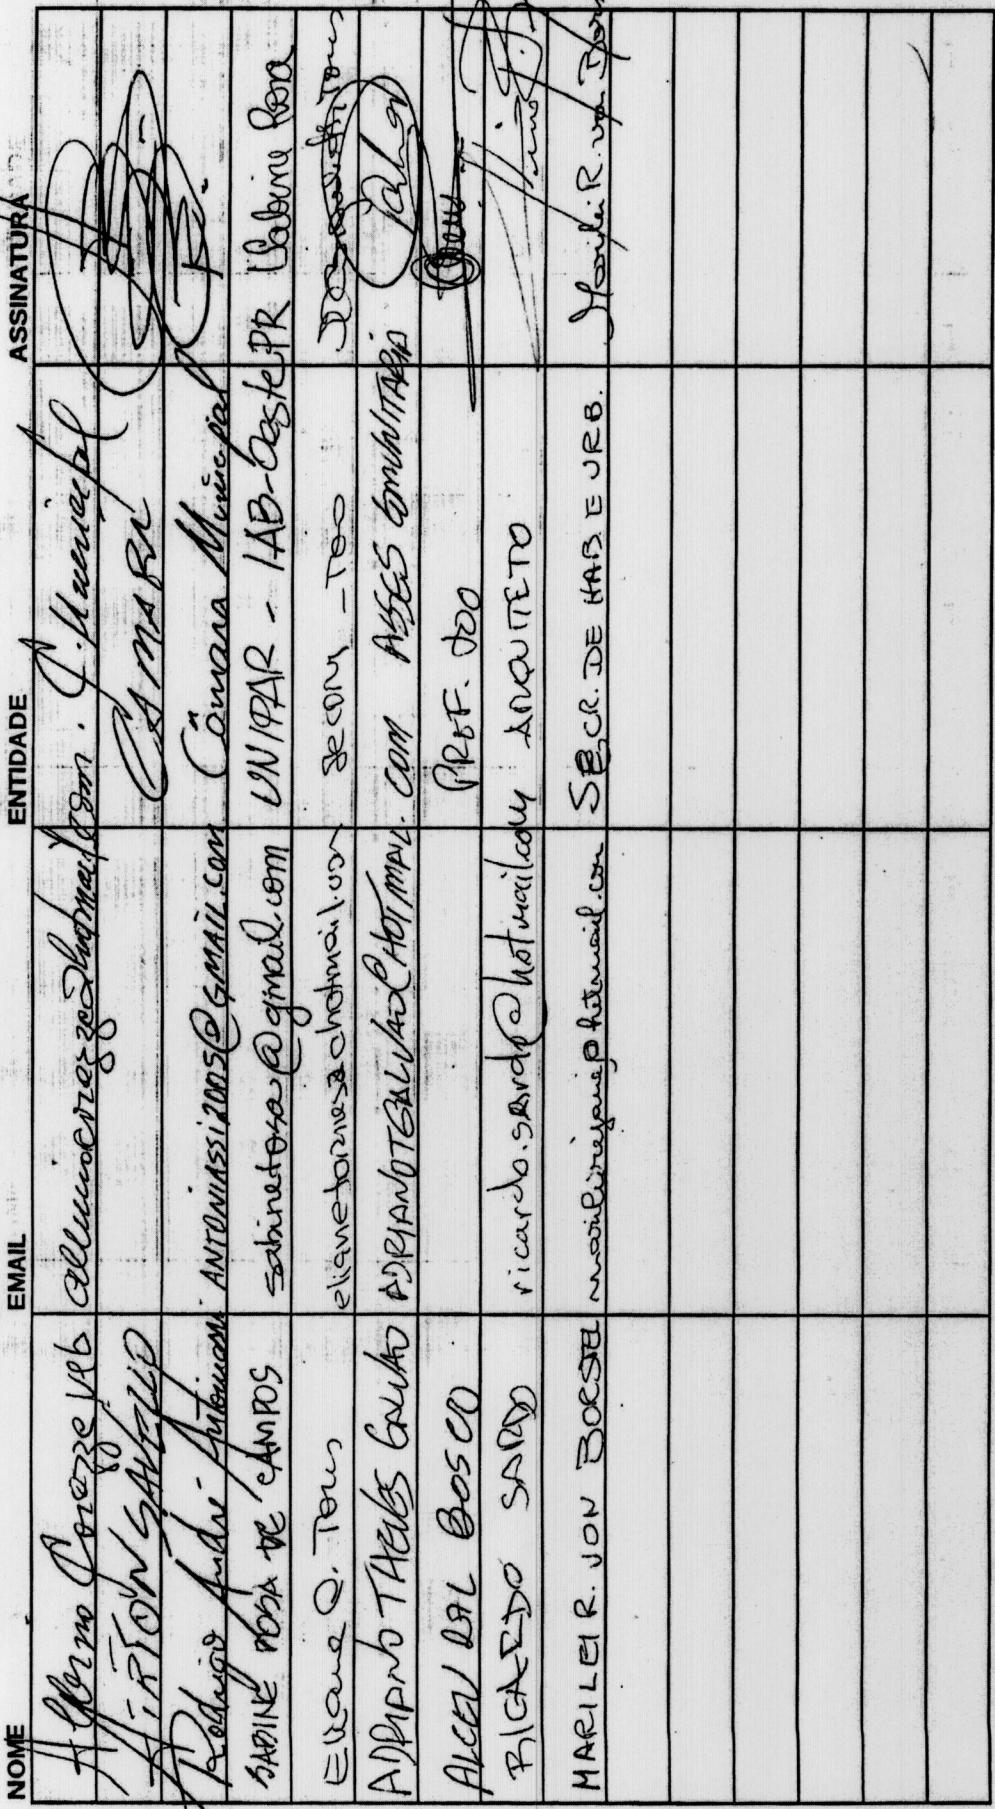 NOME EMAIL ENTIDADE ASSINATURA
C. Municipal
AIRTON SAVELLO CAMARA
Rodrigo André Antoniassi ANTONIASSI2005@GMAIL.COM Câmara Municipal
SABINE ROSA DE CAMPOS sabinerosa@gmail.com UNIPAR - IAB-Oeste PR Sabine Rosa
Eliane Q. Torres elianetorres@hotmail.com
ADRIANO THELES GALVÃO ADRIANOTGALVAO@HOTMAIL.COM ASSES COMUNITARIA
ALCEU DAL BOSCO PREF. TOO
RICARDO SARDO ricardo.sardo@hotmail.com ARQUITETO
MARILEI R. VON BORSTEL SECR. DE HAB E URB. Marilei R. von